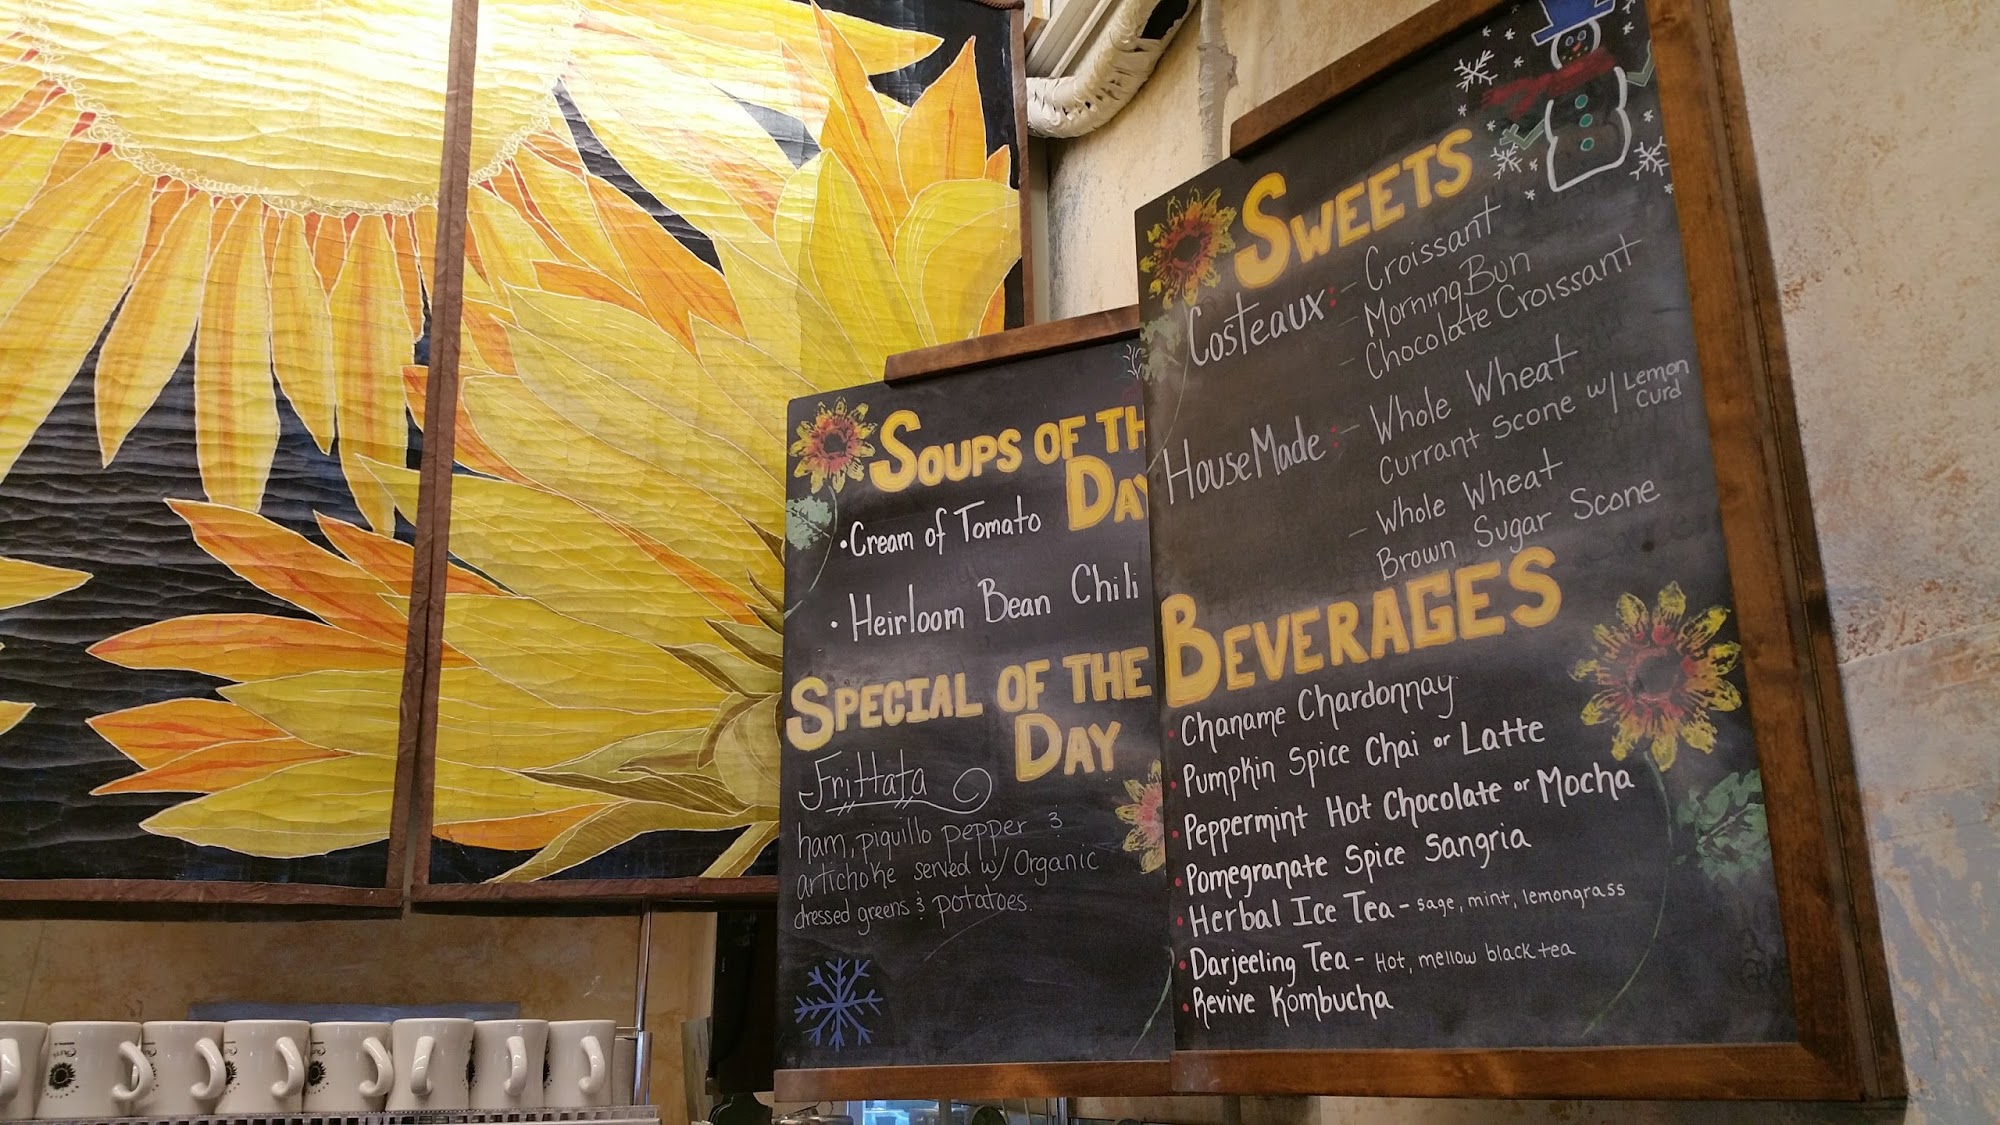 SOUPS OF TH
DAY
• Cream of Tomato
• Heirloom Bean Chili
SPECIAL OF THE
DAY
Frittata
ham, piquillo pepper &
artichoke served w/ Organic
dressed greens & potatoes.
SWEETS
Costeaux: - Croissant
- Morning Bun
- Chocolate Croissant
HouseMade: - Whole Wheat
Currant Scone w/ Lemon
Curd
- Whole Wheat
Brown Sugar Scone
BEVERAGES
• Chaname Chardonnay
• Pumpkin Spice Chai or Latte
• Peppermint Hot Chocolate or Mocha
• Pomegranate Spice Sangria
• Herbal Ice Tea - sage, mint, lemongrass
• Darjeeling Tea - Hot, mellow black tea
• Revive Kombucha